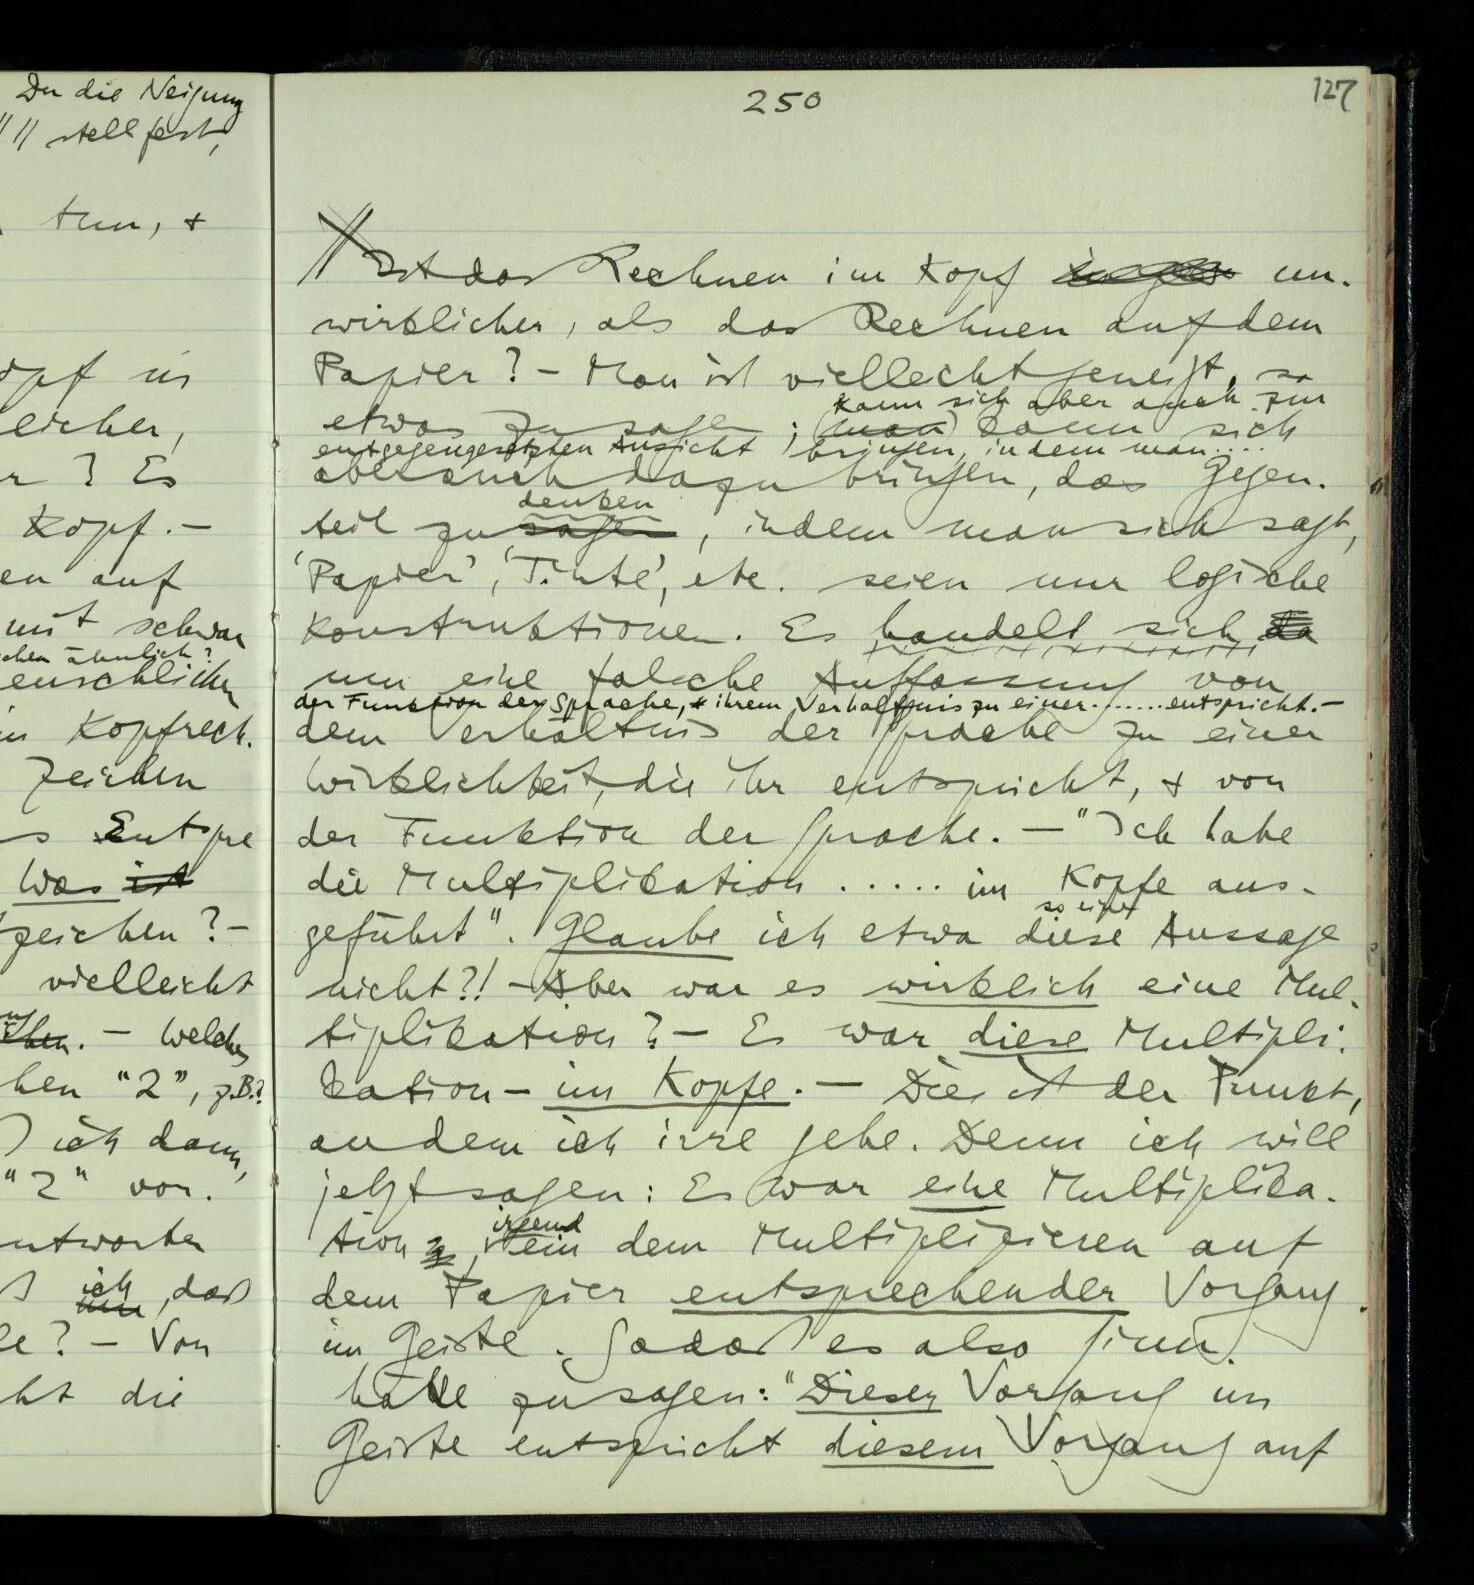 Du die Neigung
stell fest,
tun, +
opf in
eicher,
r? Es
Kopf. –
en auf
mit schwar
chen ähnlich?
enschlichen
in Kopfrech.
Zeichen
s Entspre
Was ist
zeichen? –
vielleicht
. – Welches
hen "2", z.B.?
ich dann,
"2" vor.
ntworten
ich, daß
le? – Von
ht die
250
127
Ist das Rechnen im Kopf un-
wirklicher, als das Rechnen auf dem
Papier? – Man ist vielleicht geneigt, so
kann sich aber auch zur
etwas zu sagen; (man) kann sich
entgegengesetzten Ansicht bringen, indem man....
aber auch dazu bringen, das Gegen-
denken
teil zu sagen, indem man sich sagt,
'Papier', 'Tinte', etc. seien nur logische
Konstruktionen. Es handelt sich da
um eine falsche Auffassung von
der Function der Sprache, + ihrem Verhältnis zu einer.......entspricht. –
dem Verhältnis der Sprache zu einer
Wirklichkeit, die ihr entspricht, + von
der Funktion der Sprache. – "Ich habe
die Multiplikation ..... im Kopfe aus-
so eine
geführt". Glaube ich etwa diese Aussage
nicht?! – Aber war es wirklich eine Mul-
tiplikation? – Es war diese Multipli-
kation – im Kopfe. – Dies ist der Punkt,
an dem ich irre gehe. Denn ich will
jetzt sagen: Es war eine Multiplika-
irgend
tion, ein dem Multiplizieren auf
dem Papier entsprechender Vorgang
im Geiste. Sodaß es also Sinn
hätte zu sagen: "Dieser Vorgang im
Geiste entspricht diesem Vorgang auf